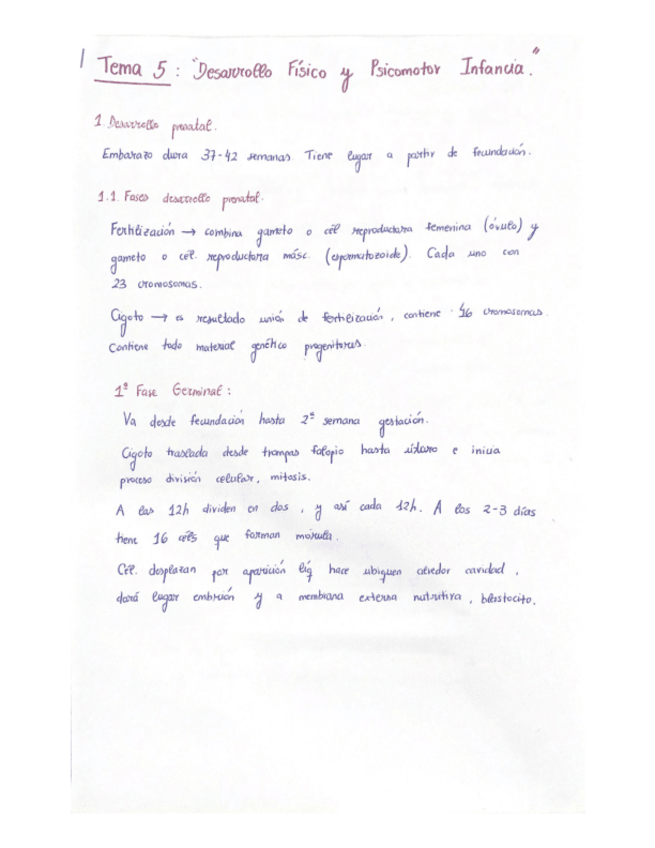 Tema 5: "Desarrollo Físico y Psicomotor Infancia."
1. Desarrollo prenatal.
Embarazo dura 37-42 semanas. Tiene lugar a partir de fecundación.
1.1. Fases desarrollo prenatal.
Fertilización → combina gameto o cél reproductora femenina (óvulo) y
gameto o cél. reproductora másc. (espermatozoide). Cada uno con
23 cromosomas.
Cigoto → es resultado unión de fertilización, contiene 46 cromosomas.
Contiene todo material genético progenitores.
1ª Fase Germinal:
Va desde fecundación hasta 2ª semana gestación.
Cigoto traslada desde trompas falopio hasta útero e inicia
proceso división celular, mitosis.
A las 12h dividen en dos, y así cada 12h. A los 2-3 días
tiene 16 céls que forman mórula.
Cél. desplazan por aparición líq hace ubiquen alredor cavidad,
dará lugar embrión y a membrana externa nutritiva, blastocito.